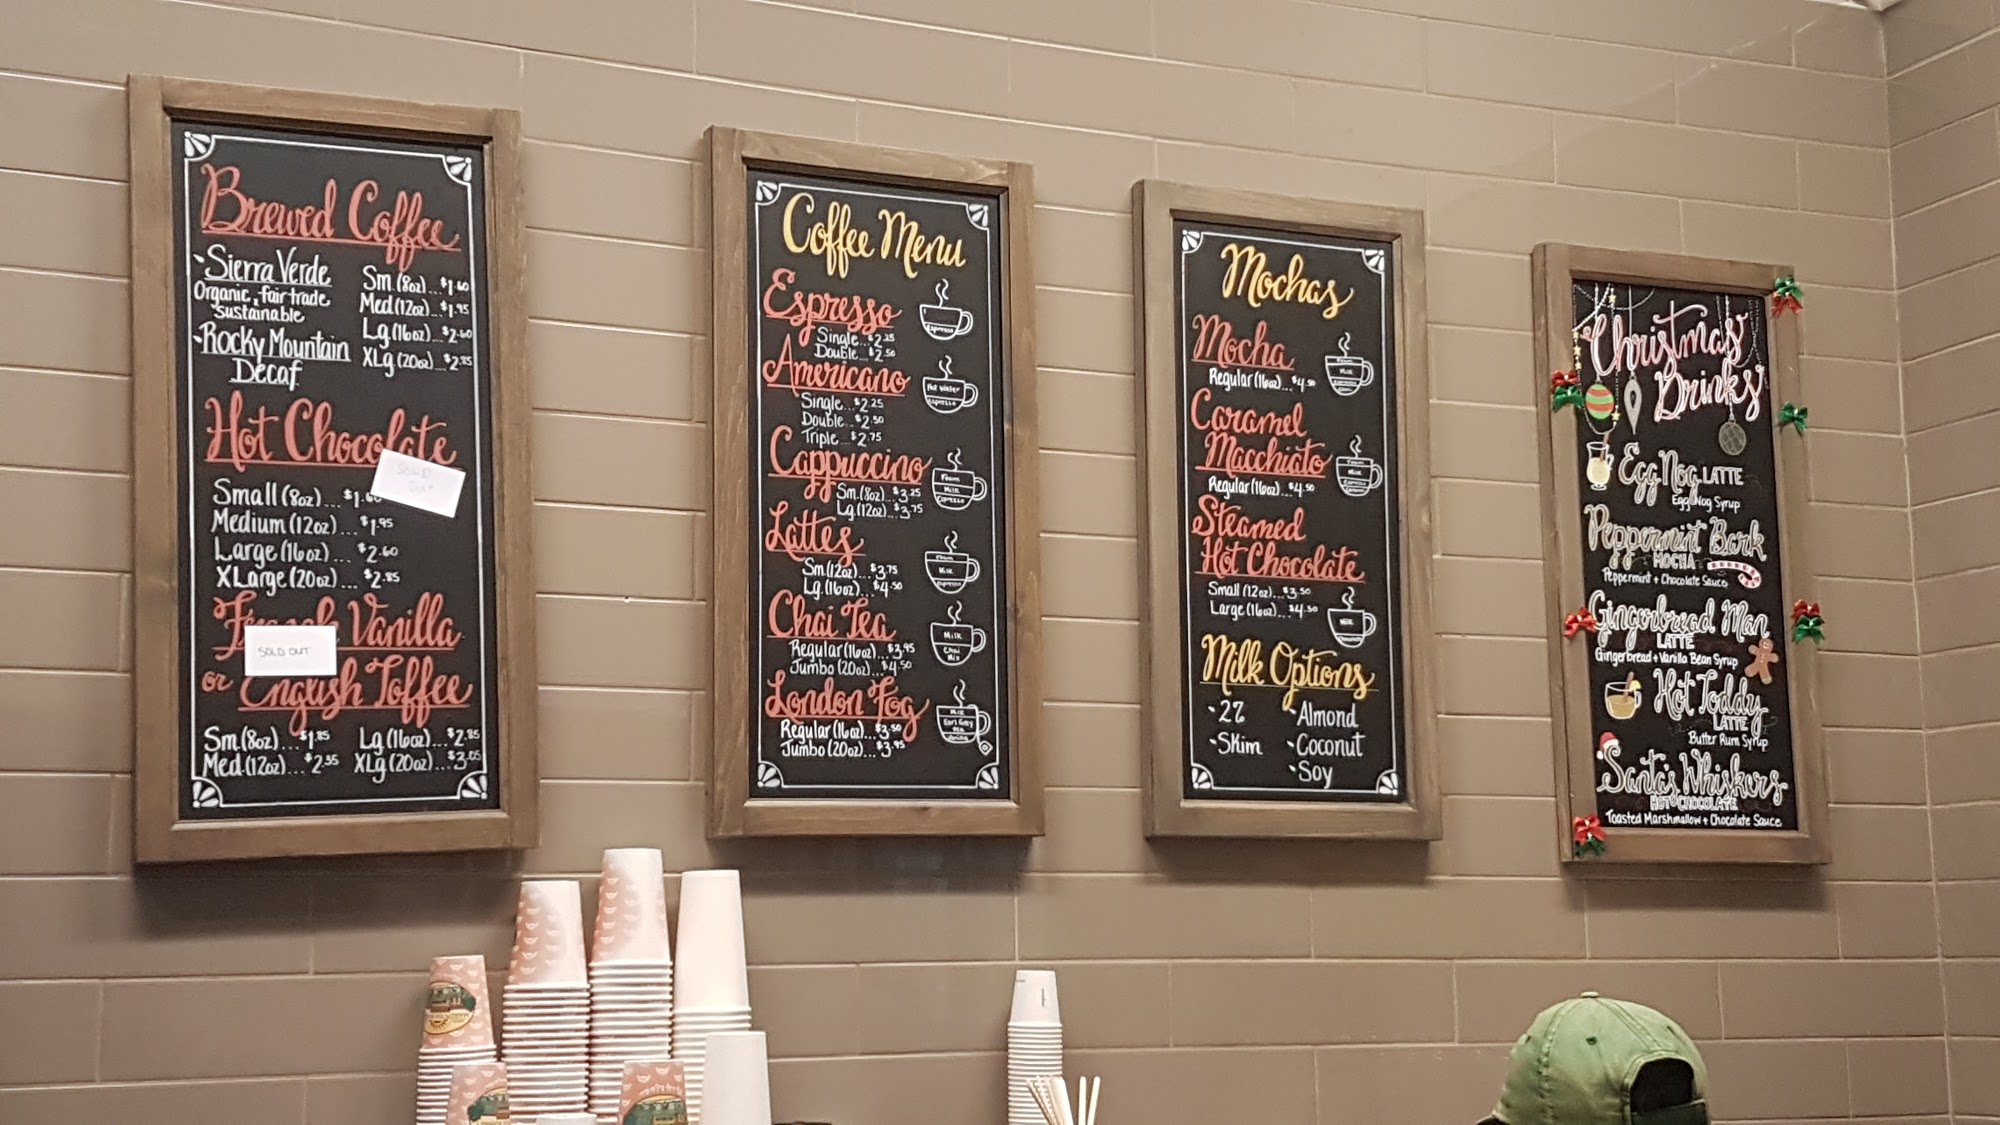 Brewed Coffee
• Sierra Verde
Organic, fair trade
sustainable
• Rocky Mountain
Decaf
Sm (8oz)...$1.60
Med (12oz)...$1.95
Lg (16oz)...$2.60
XLg (20oz)...$2.85
Hot Chocolate
SOLD
OUT
Small (8oz)...$1.60
Medium (12oz)...$1.95
Large (16oz)...$2.60
XLarge (20oz)...$2.85
Vanilla
SOLD OUT
or English Toffee
Sm (8oz)...$1.85
Med. (12oz)...$2.35
Lg (16oz)...$2.85
XLg (20oz)...$3.05
Coffee Menu
Espresso
Single...$2.25
Double...$2.50
Espresso
Americano
Single...$2.25
Double...$2.50
Triple...$2.75
Hot Water
Espresso
Cappuccino
Sm. (8oz)...$3.25
Lg. (12oz)...$3.75
Foam
Milk
Espresso
Lattes
Sm (12oz)...$3.75
Lg. (16oz)...$4.50
Foam
Milk
Espresso
Chai Tea
Regular (16oz)...$3.95
Jumbo (20oz)...$4.50
Milk
Chai
Mix
London Fog
Regular (16oz)...$3.50
Jumbo (20oz)...$3.95
Milk
Earl Grey
Tea
Mochas
Mocha
Regular (16oz)...$4.50
Foam
Milk
Espresso
Caramel
Macchiato
Regular (16oz)...$4.50
Foam
Milk
Espresso
Steamed
Hot Chocolate
Small (12oz)...$3.50
Large (16oz)...$4.50
Milk
Chocolate
Milk Options
• 2%
• Skim
• Almond
• Coconut
• Soy
Christmas
Drinks
Egg Nog LATTE
Egg Nog Syrup
Peppermint Bark
MOCHA
Peppermint + Chocolate Sauce
Gingerbread Man
LATTE
Gingerbread + Vanilla Bean Syrup
Hot Toddy
LATTE
Butter Rum Syrup
Santa's Whiskers
HOT CHOCOLATE
Toasted Marshmallow + Chocolate Sauce